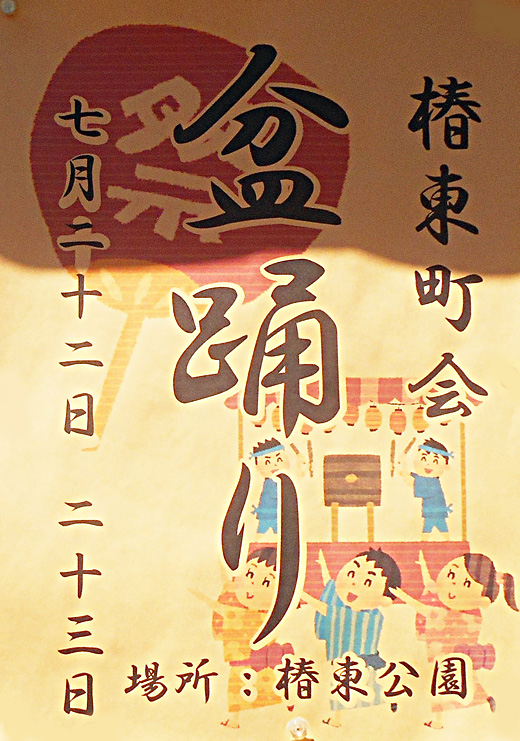 椿東町会
盆踊り
祭
七月二十二日 二十三日
場所：椿東公園